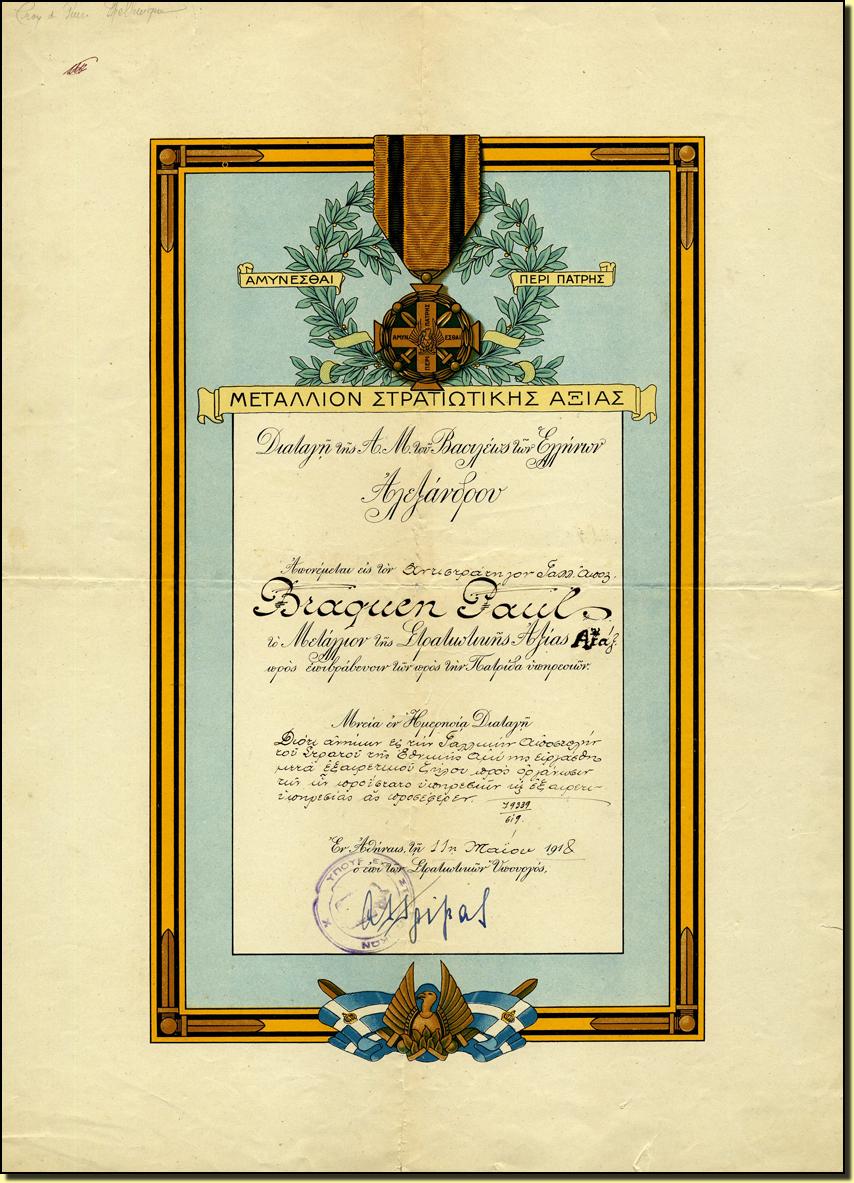 ΑΜΥΝΕΣΘΑΙ
ΠΕΡΙ ΠΑΤΡΗΣ
ΑΜΥΝ ΕΣΘΑΙ
ΠΕΡΙ ΠΑΤΡΗΣ
ΜΕΤΑΛΛΙΟΝ ΣΤΡΑΤΙΩΤΙΚΗΣ ΑΞΙΑΣ
Διαταγῇ τῆς Α. Μ. τοῦ Βασιλέως τῶν Ἑλλήνων
Ἀλεξάνδρου
Ἀπονέμεται εἰς τὸν Ἀντιστράτηγον Γαλλ. Ἀποσ.
Braquen Paul
τὸ Μετάλλιον τῆς Στρατιωτικῆς Ἀξίας
πρὸς ἐπιβράβευσιν τῶν πρὸς τὴν Πατρίδα ὑπηρεσιῶν.
Μνεία ἐν Ἡμερησίᾳ Διαταγῇ
Διότι ἀνήκων εἰς τὴν Γαλλικὴν Ἀποστολὴν
τοῦ Στρατοῦ τῆς Ἐθνικῆς Ἀμύνης εἰργάσθη
μετὰ ἐξαιρετικοῦ ζήλου πρὸς ὀργάνωσιν
τῶν ὧν προΐστατο ὑπηρεσιῶν
ὑπηρεσίας ἃς προσέφερεν.
79339
619.
Ἐν Ἀθήναις, τῇ 11ῃ Μαΐου 1918
ὁ ἐπὶ τῶν Στρατιωτικῶν Ὑπουργός,